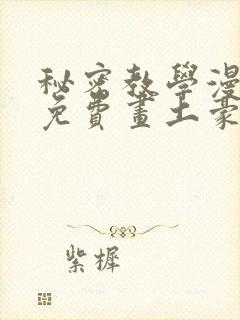 秘密教學漫
免費畫土豪
紫樨